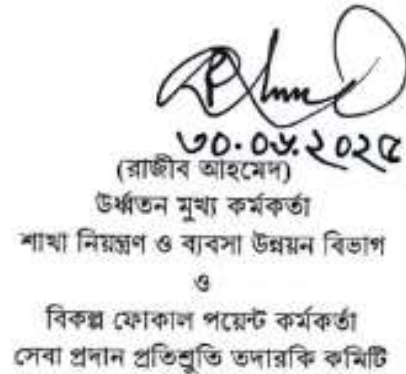 ৩০.০৬.২০২৫
(রাজীব আহমেদ)
উর্ধ্বতন মুখ্য কর্মকর্তা
শাখা নিয়ন্ত্রণ ও ব্যবসা উন্নয়ন বিভাগ
ও
বিকল্প ফোকাল পয়েন্ট কর্মকর্তা
সেবা প্রদান প্রতিশ্রুতি তদারকি কমিটি